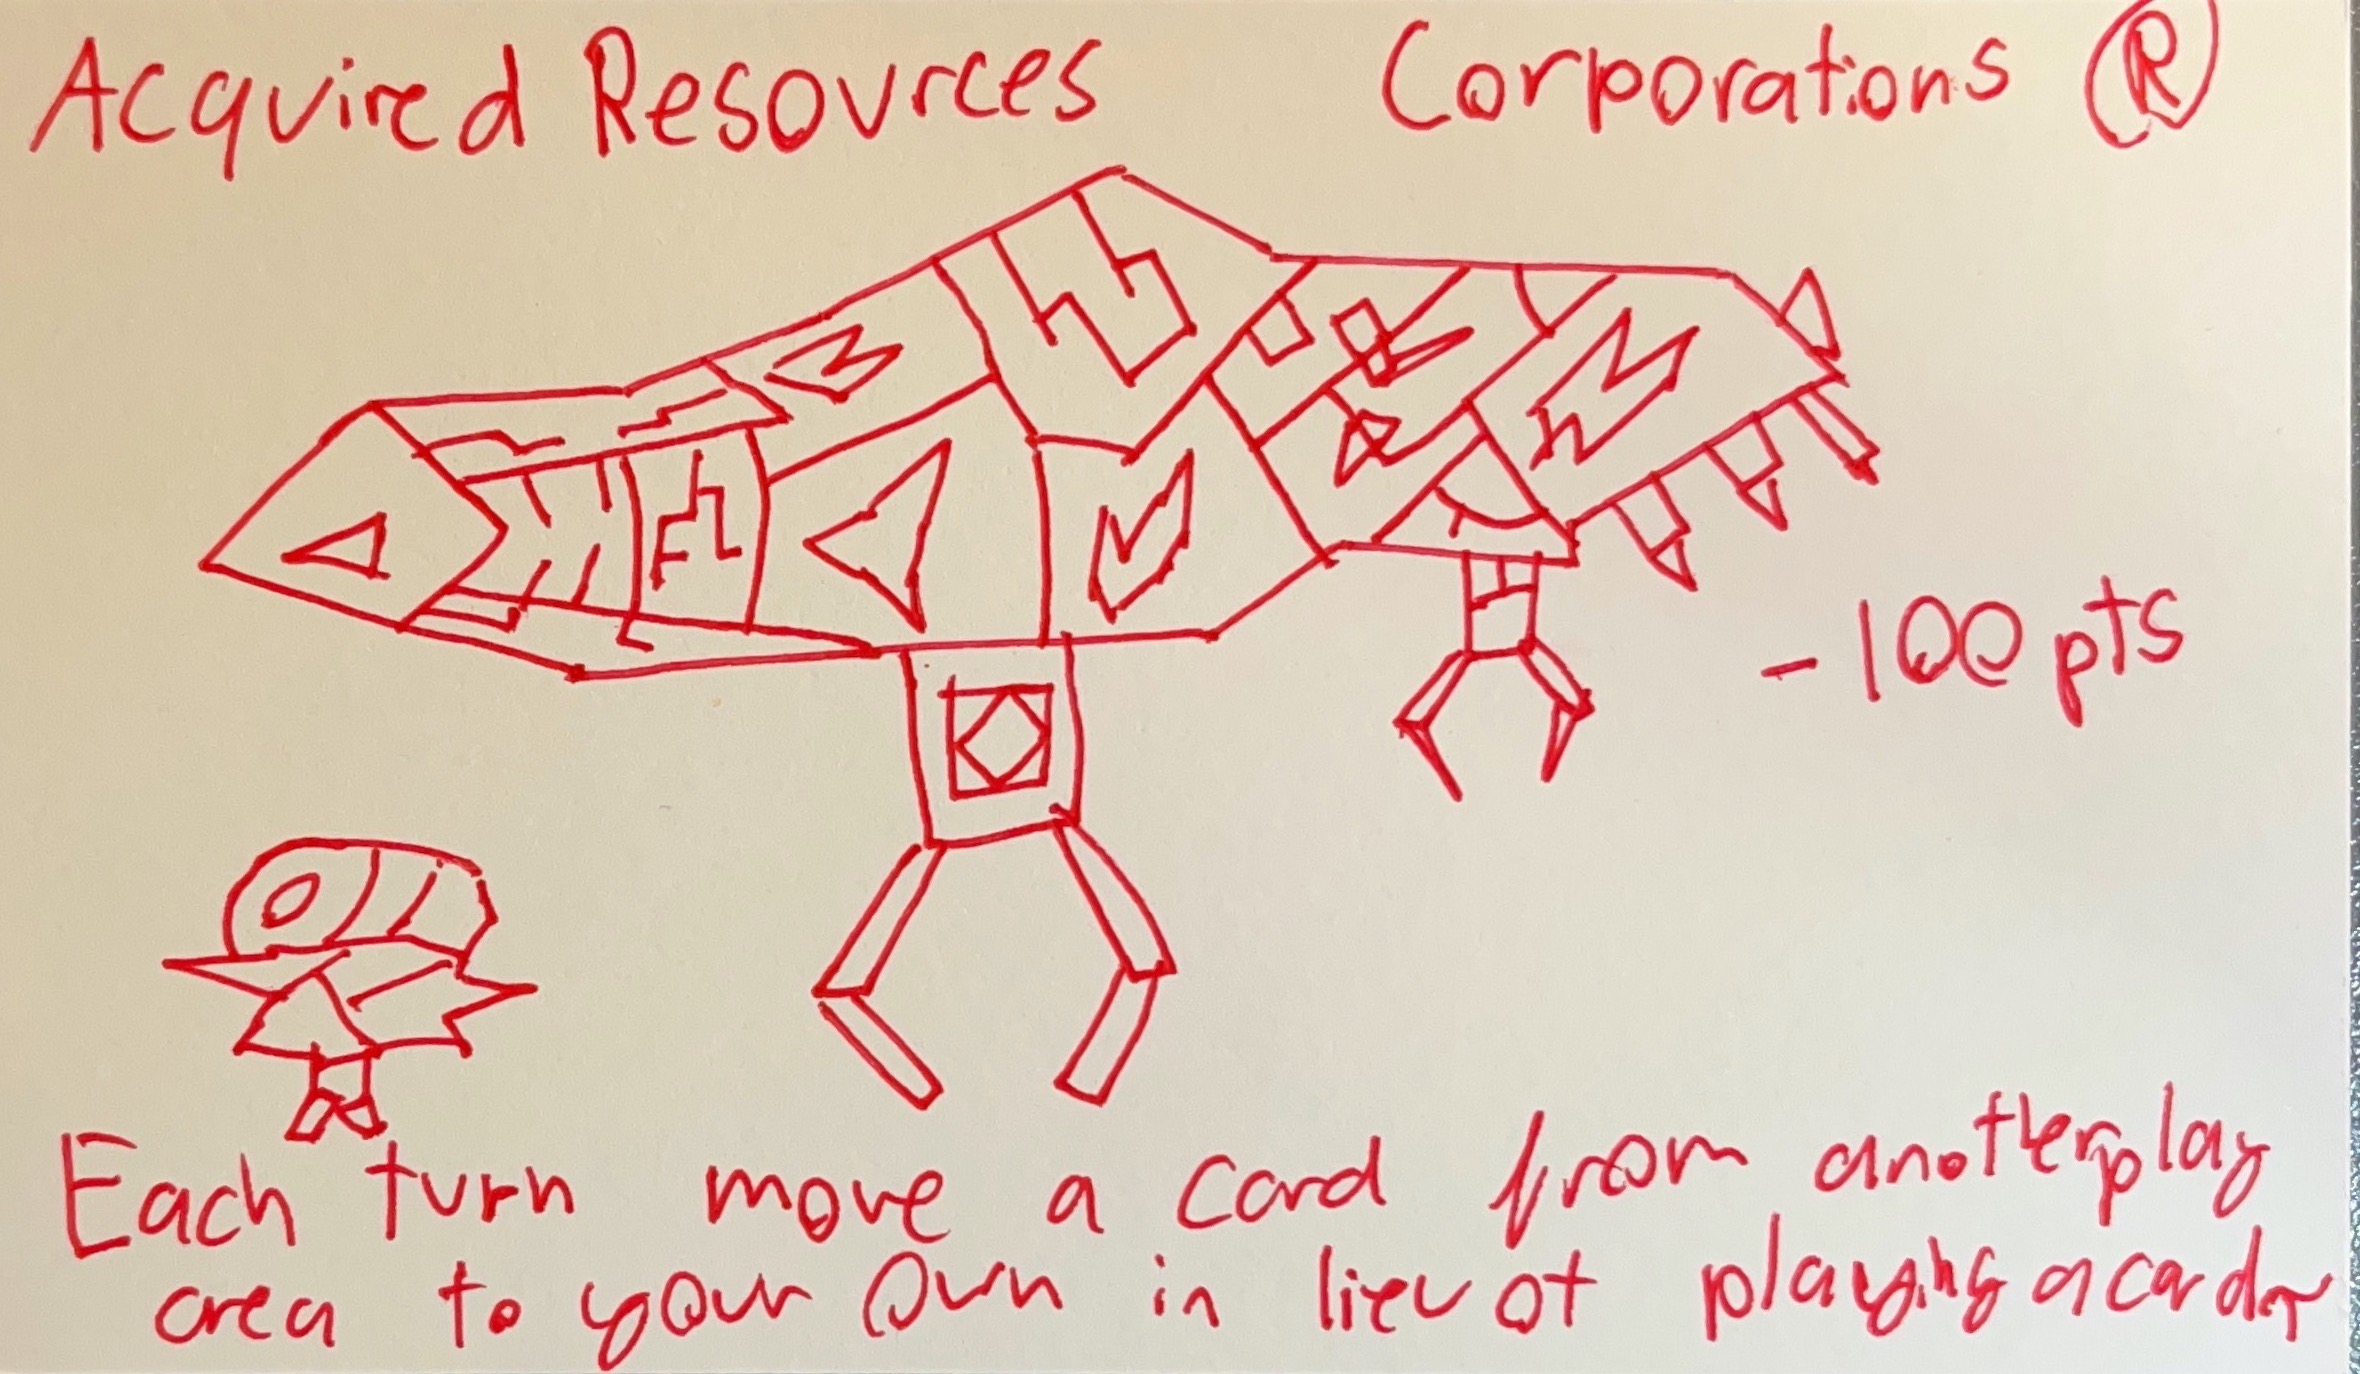 Acquired Resources Corporations ®
-100 pts
Each turn move a card from another play
area to your own in lieu of playing a card